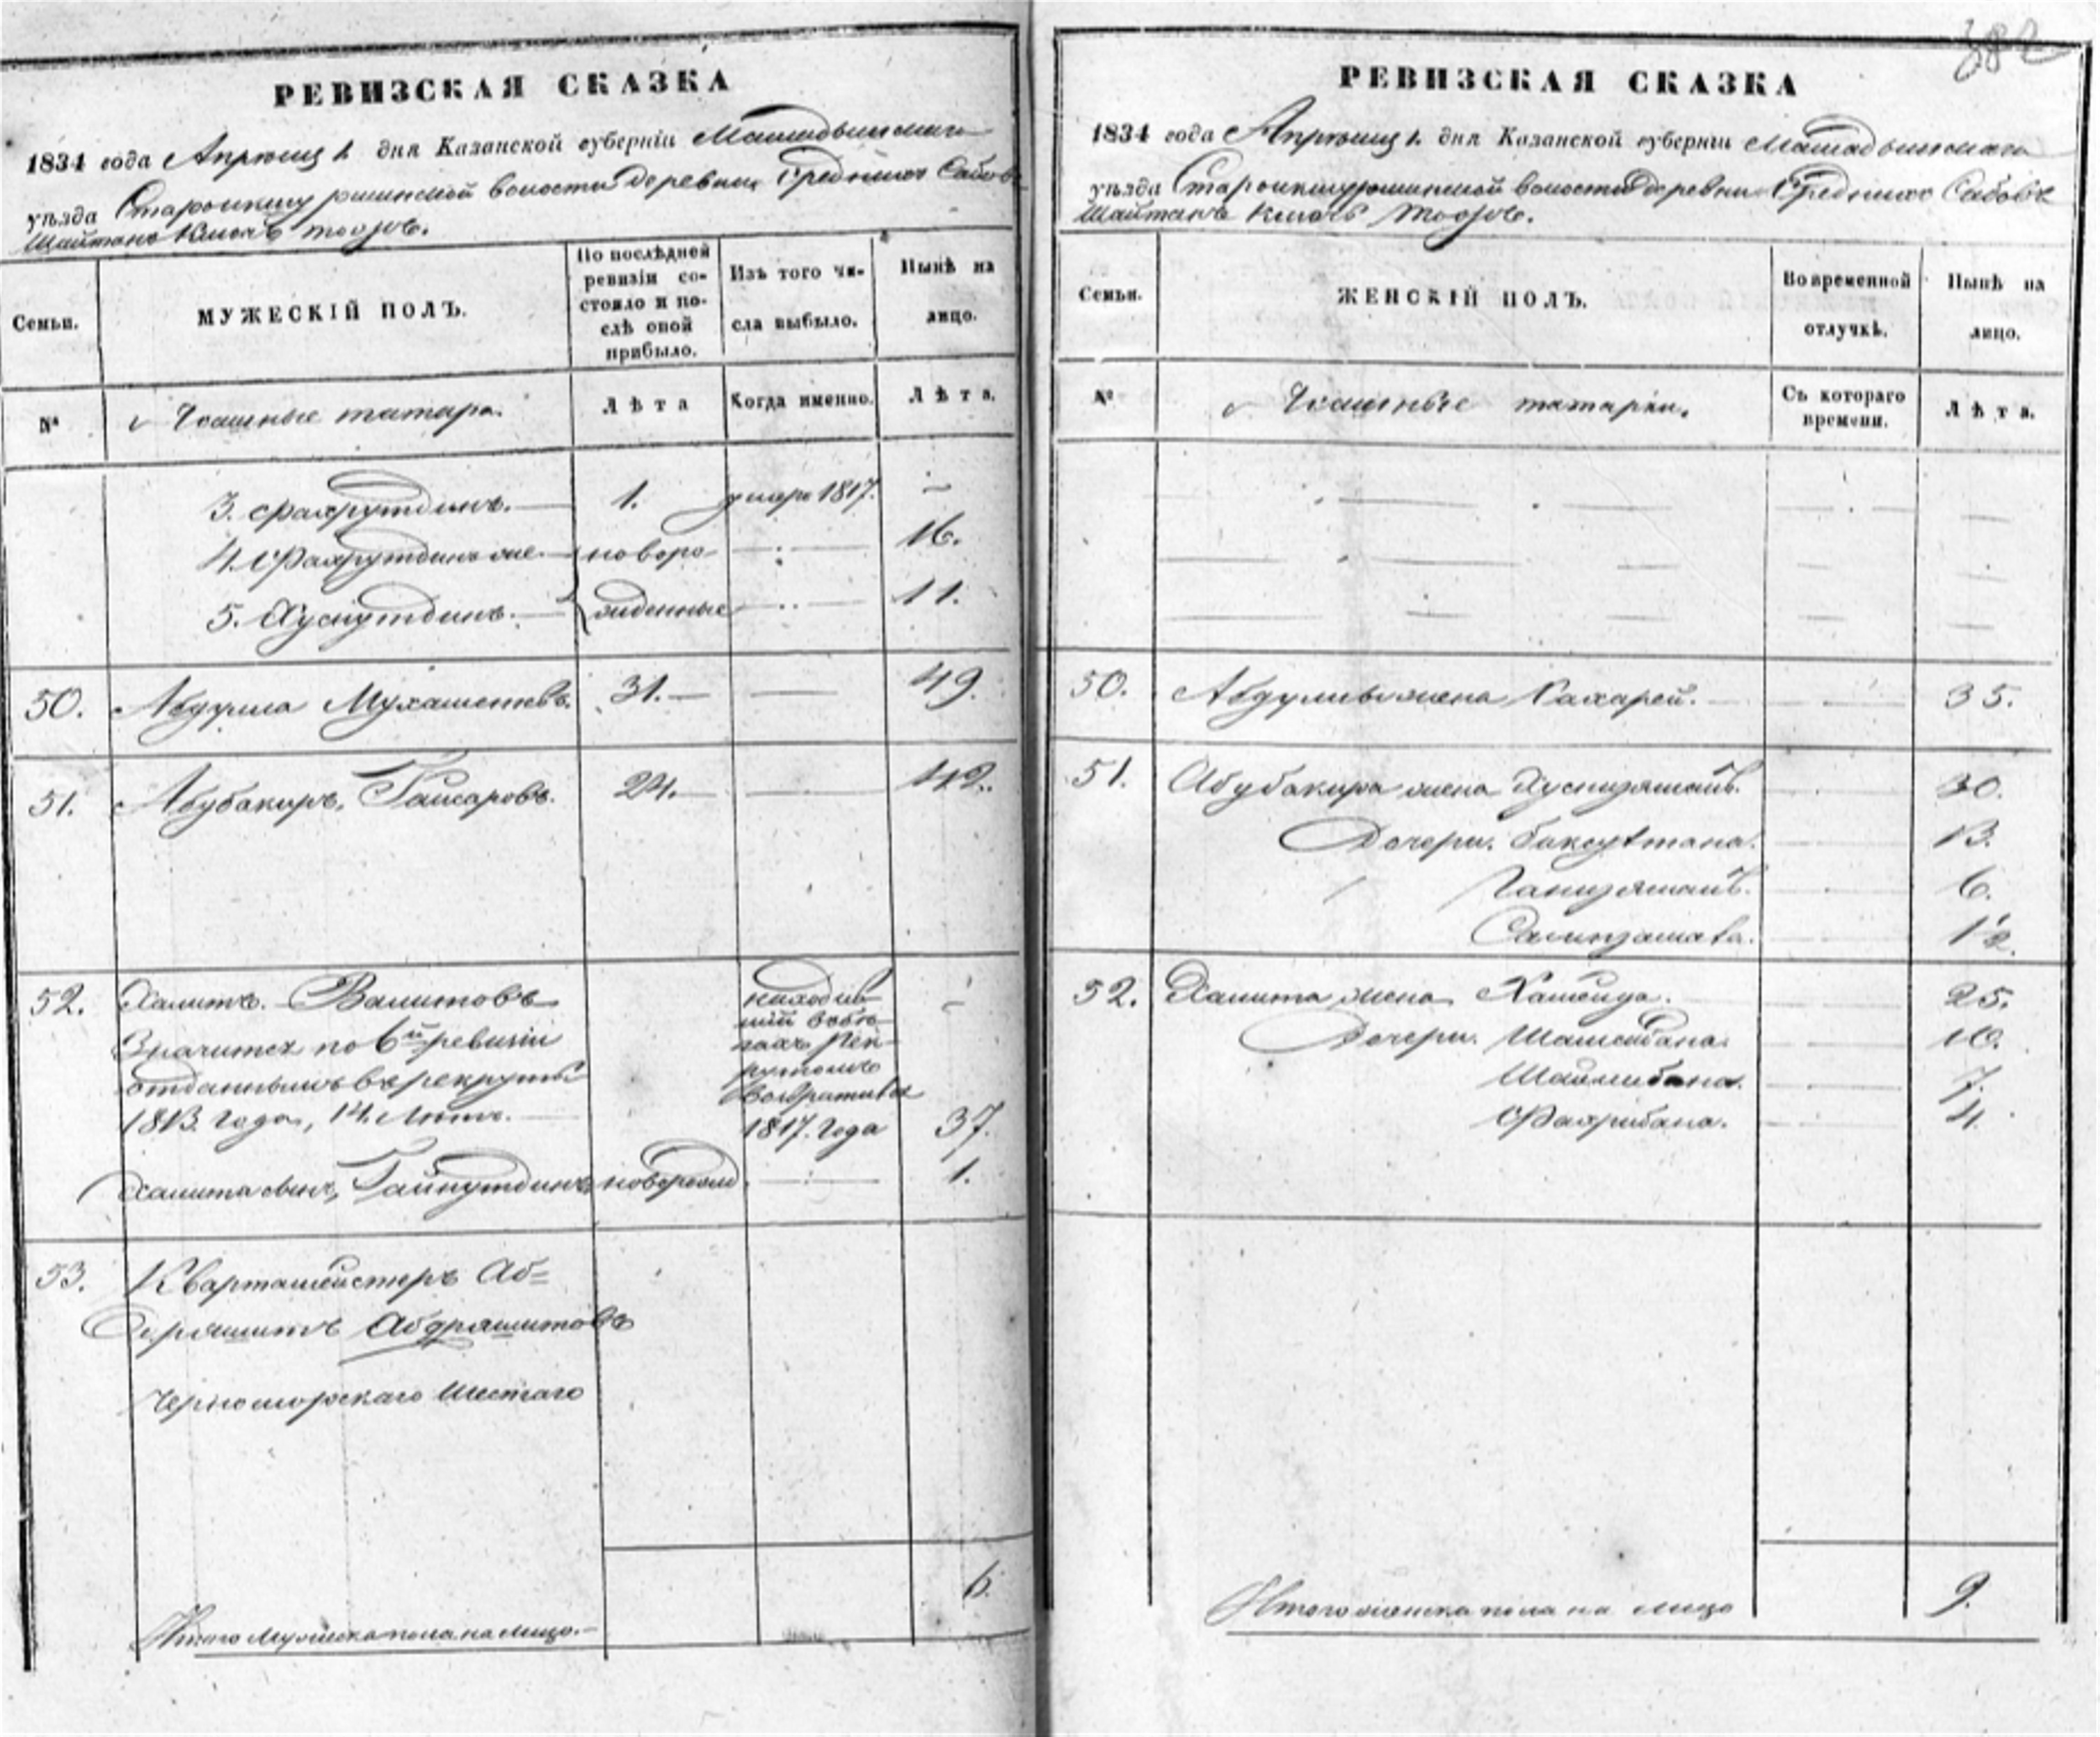 РЕВИЗСКАЯ СКАЗКА
1834 года Апрѣля 1. дня Казанской губерніи Мамадышскаго
уѣзда волости деревни Среднихъ Сабовъ
Шайтанъ тожъ.
Семьи.
МУЖЕСКІЙ ПОЛЪ.
По послѣдней
ревизіи со-
стояло и по-
слѣ оной
прибыло.
Изъ того чи-
сла выбыло.
Нынѣ на
лицо.
№
Ясашные татара.
Лѣта
Когда именно.
Лѣта.
3. Фахрутдинъ. 1. умеръ 1817. –
4. Фахрутдинъ же. новоро 16.
5. Хуснутдинъ. жденные 11.
50. Абдулла Мухаметевъ. 31. 49.
51. Абубакиръ 24. 42.
52. Халитъ. Валитовъ
Значится по 6й ревизіи
отданнымъ въ рекруты
1813. года, 14. Лѣтъ.
рек-
рутомъ
возвратился
1817. года 37.
Халита сынъ, Гайнутдинъ новорожд 1.
53. Квартамейстеръ Аб=
дряшитъ Абдряшитовъ
Черноморскаго Шестаго
Итого Мужеска пола на лицо. 6.
382
РЕВИЗСКАЯ СКАЗКА
1834 года Апрѣля 1. дня Казанской губерніи Мамадышскаго
уѣзда волости деревни Среднихъ Сабовъ
Шайтанъ тожъ.
Семьи.
ЖЕНСКІЙ ПОЛЪ.
Во временной
отлучкѣ.
Нынѣ на
лицо.
№
Ясашные татарки.
Съ котораго
времени.
Лѣта.
50. Абдуллы жена 35.
51. Абубакира жена Хуснизямалъ. 30.
Дочери. 13.
Ганизямалъ. 6.
1/2.
52. Халита жена 25.
Дочери. 10.
7.
Фахрибана. 4.
Итого женска пола на лицо 9.